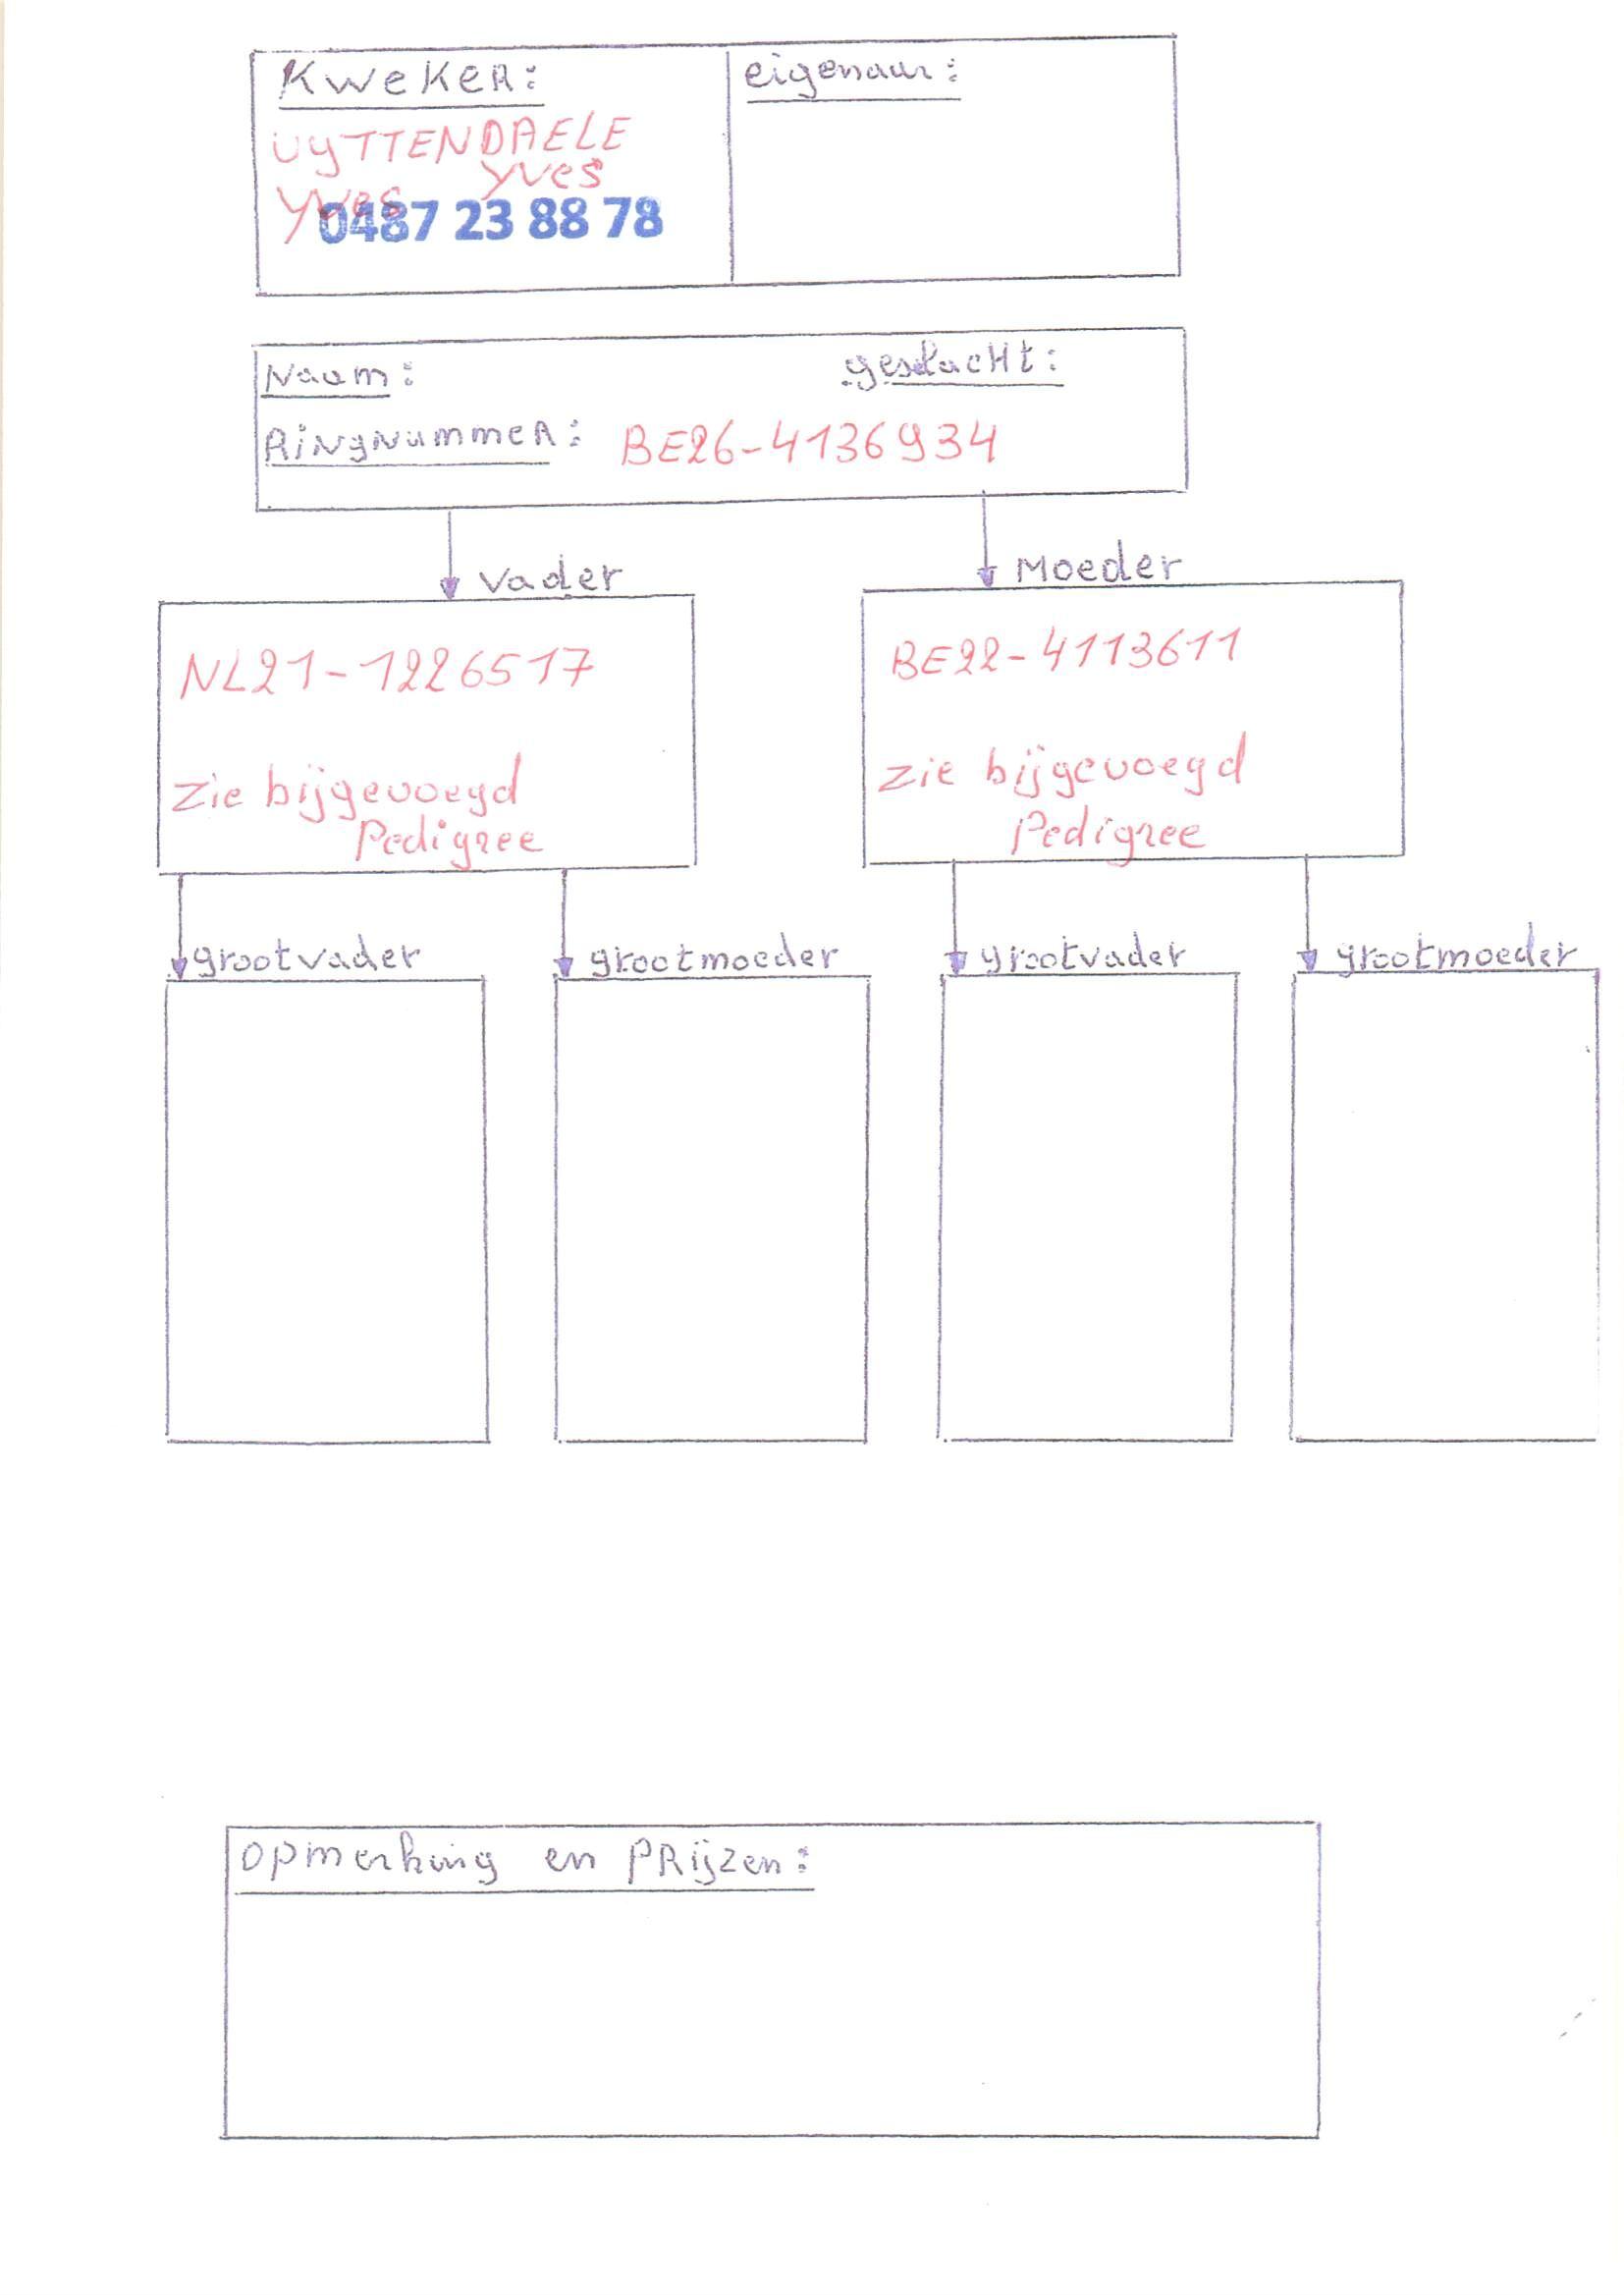 Kweker:
UYTTENDAELE
Yves
Yves
0487 23 88 78
eigenaar:
Naam:
geslacht:
Ringnummer: BE26-4136934
Vader
NL21-1226517
Zie bijgevoegd
Pedigree
Moeder
BE22-4113611
Zie bijgevoegd
Pedigree
grootvader
grootmoeder
grootvader
grootmoeder
opmerking en PRijzen: